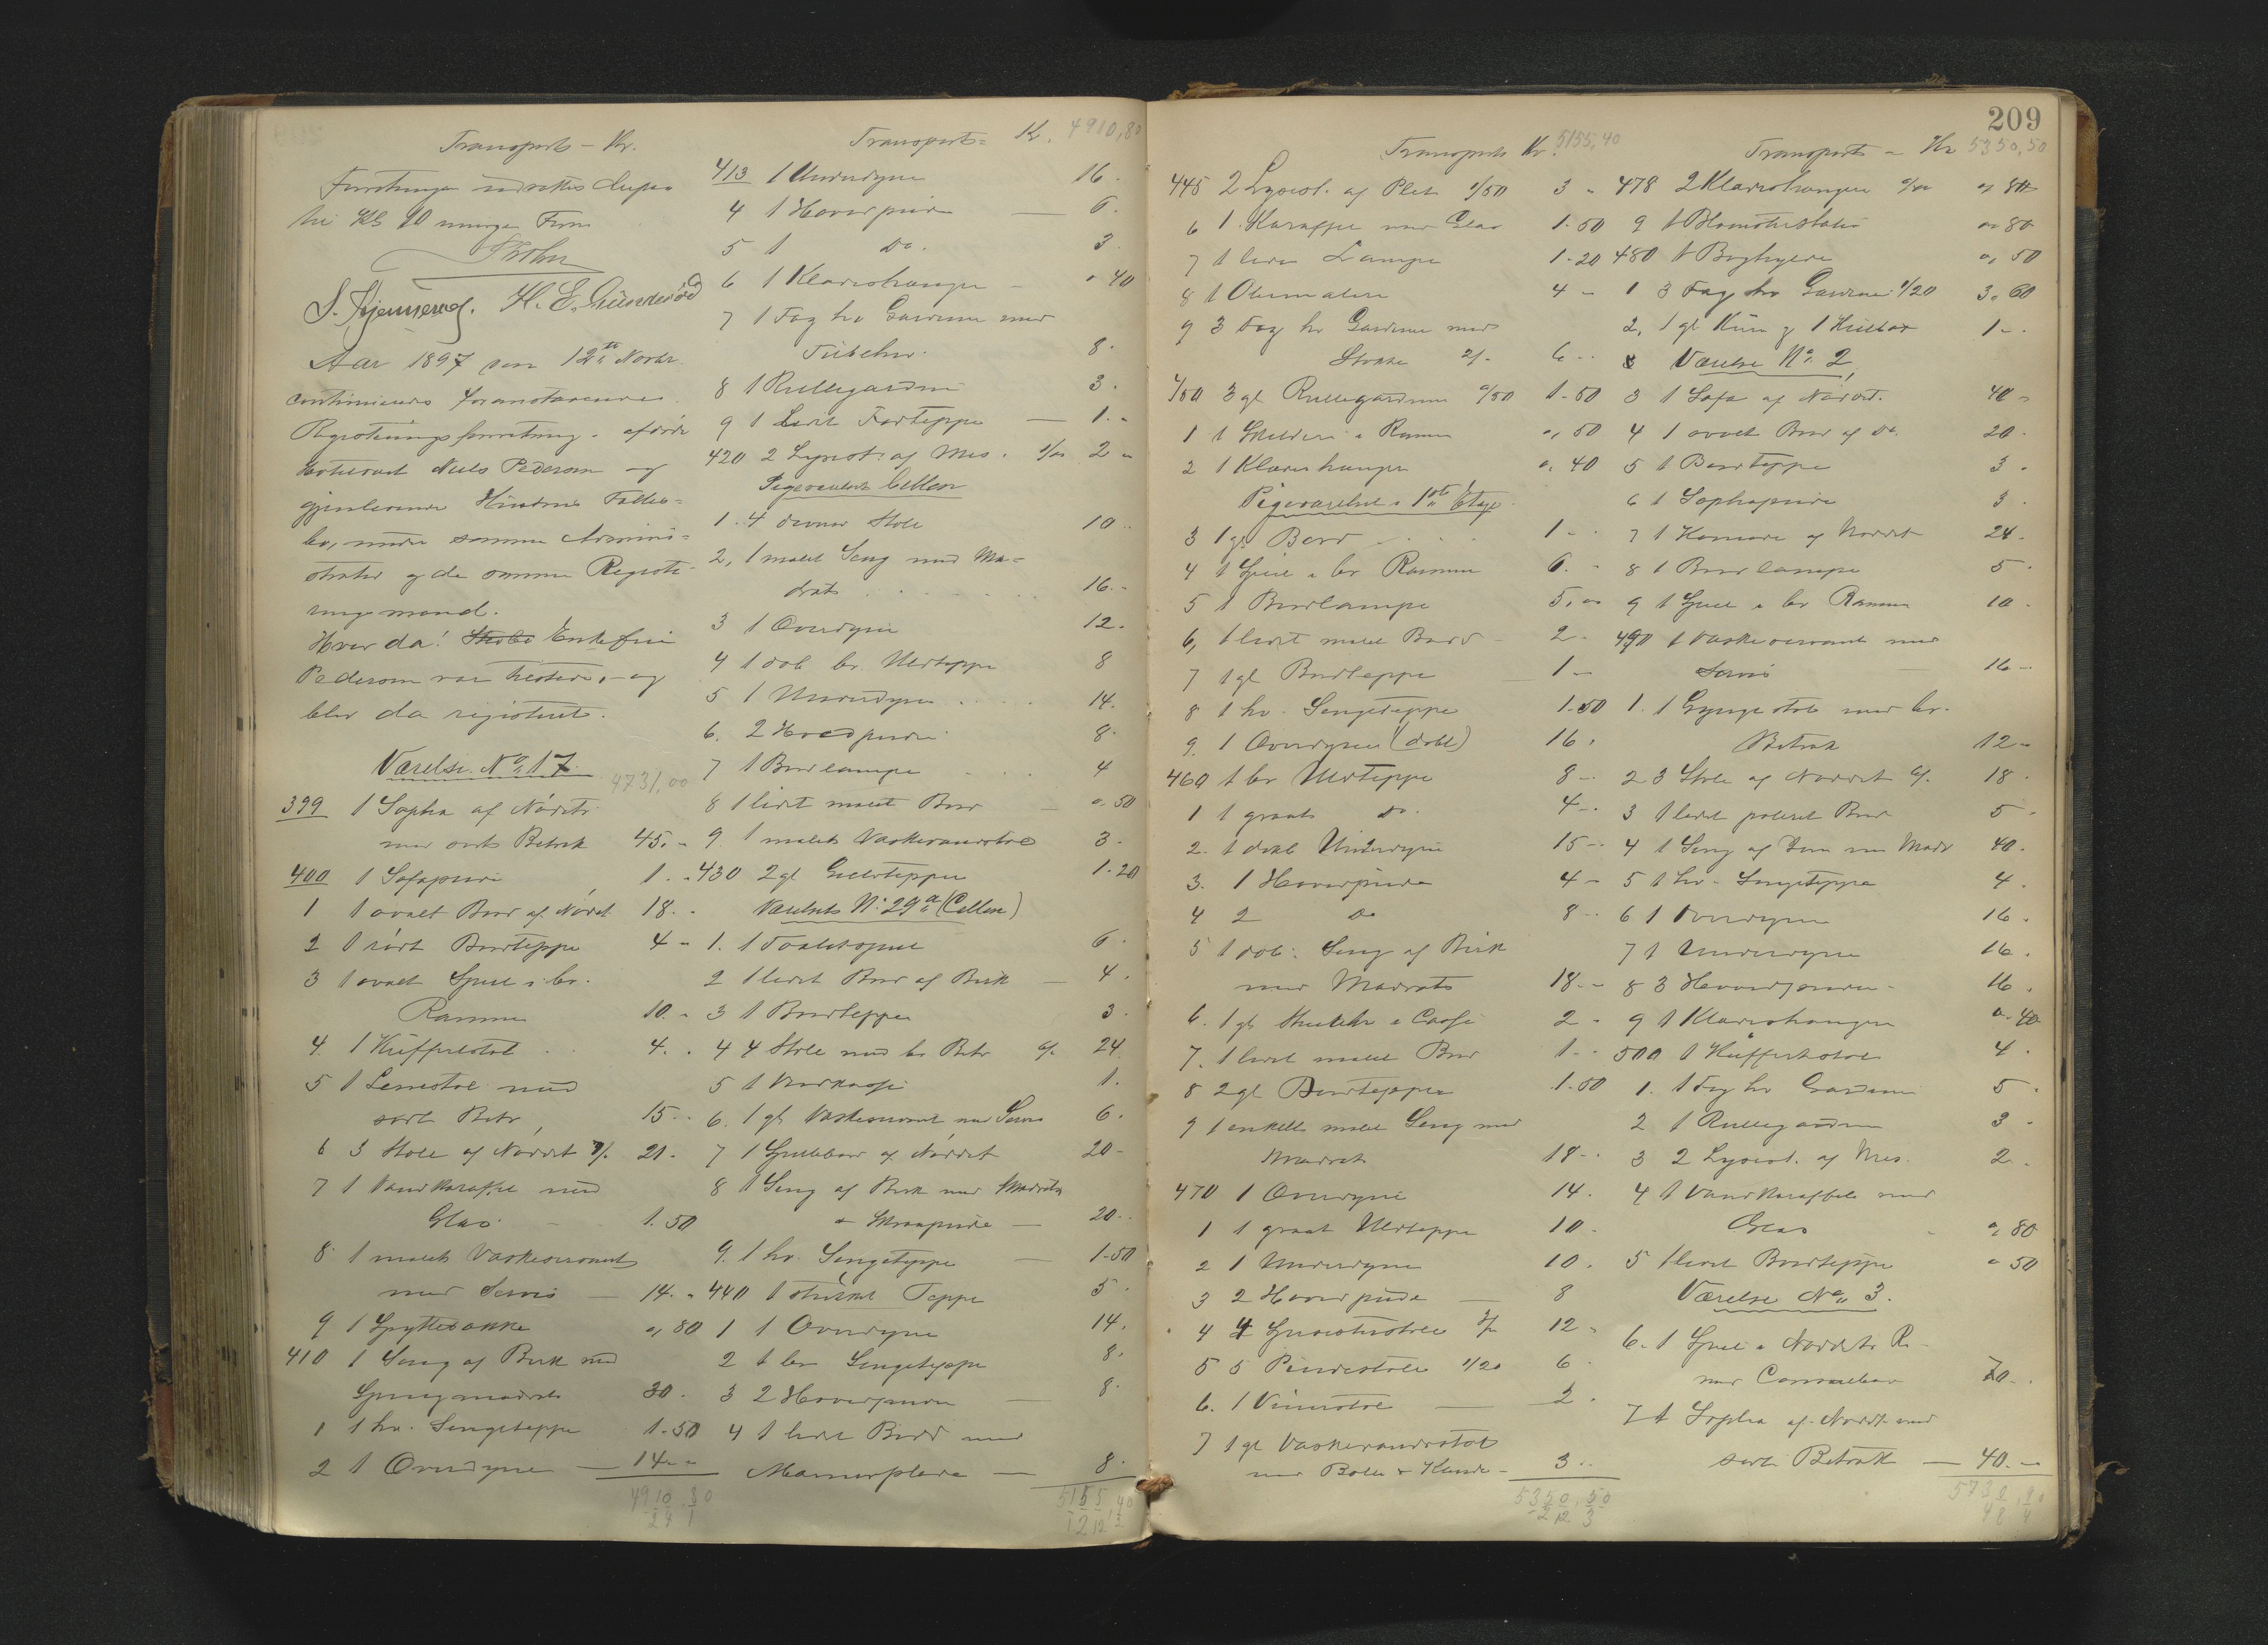 Transport - Kr.
Forretningen udsattes
til Kl 10 morgen Form
H. E. Gunnerød
Aar 1897 den 12te Novbr
continueredes foranstaaende
Registreringsforretning i afdøde
Niels Pedersen og
gjenlevende Hustrus Fælles-
bo, under samme Admini-
strator og de samme Registe-
ringsmænd.
Hvor da! Enkefru
Pedersen var tilstede, - og
blev da registreret.
Værelse No 17.
4731,00
399 1 Sopha af Nødetr.
med sort Betræk 45. -
400 1 Sofapude 1. -
1 1 ovalt Bord af Nødet. 18. -
2 1 rødt Bordteppe 4 -
3 1 ovalt Speil i br.
Ramme 10. -
4 1 Kuffertstol 4. -
5 1 Lenestol med
sort Betr. 15. -
6 3 Stole af Nødet 7/. 21. -
7 1 Vandkaraffel med
Glas 1. 50
8 1 malet Vaskeservant
med Servis 14. -
9 1 Spyttebakke 0, 80
410 1 Seng af Birk med
Springmadrats 30. -
1 1 hv. Sengeteppe 1. 50
2 1 Overdyne 14. -
4910,80
Transport = Kr. 4910,80
413 1 Underdyne 16. -
4 1 Hovedpude 6. -
5 1 do. 3
6 1 Klædeshænger 0 40
7 1 Fag hv Gardiner med
Tilbehør. 8. -
8 1 Rullegardin 3. -
9 1 lidet Fodteppe 1. -
420 2 Lysest. af Mes. 1/00 2 -
Pigeværelset
1. 4 Stole 10 -
2, 1 malet Seng med Ma-
drats 16. -
3 1 Overdyne 12. -
4 1 dob br. Uldteppe 8
5 1 Underdyne 14.
6. 2 Hovedpuder 8.
7 1 Bordlampe 4
8 1 lidet malet Bord 0. 50
9. 1 malet Vaskevandsstol 3.
430 2 gl Gulvtepper 1. 20
Værelset No 29a
1. 1 Toiletspeil 6.
2 1 lidet Bord af Birk 4.
3 1 Bordteppe 3.
4 4 Stole med br Betr 6/. 24.
5 1 1.
6. 1 gl Vaskeservant med Servis 6.
7 1 Spillebord af Nødet 20 -
8 1 Seng af Birk med Madrats
& Skraapude 20. -
9. 1 hv. Sengeteppe 1. 50
440 1 Teppe 5.
1 1 Overdyne 14.
2 1 br Sengeteppe 8.
3 2 Hovedpuder 8.
4 1 lidet Bord med
Marmorplade 8.
5155,40
209
Transport Kr. 5155,40
445 2 Lysest. af Plet 1/50 3 -
6 1 Karaffel med Glas 1. 50
7 1 liden Lampe 1. 20
8 1 4 -
9 3 Fag hv Gardiner med
2/. 6 -
450 3 gl Rullegardiner 0/50 1. 50
1 1 Skilderi i Ramme 0, 50
2 1 Klædeshænger 0. 40
Pigeværelset i 1ste Etage
3 1 gl Bord 1 -
4 1 Speil i br Ramme 6. -
5 1 Bordlampe 5, 00
6, 1 lidet malet Bord 2 -
7 1 gl Bordteppe 1 -
8 1 hv. Sengeteppe 1. 50
9. 1 Overdyne (dobl) 16.
460 1 br Uldteppe 8 -
1 1 graat do. 4 -
2. 1 dobl Underdyne 15 -
3. 1 Hovedpude 4 -
4 2 Do 8 -
5 1 dob. Seng af Birk
med Madrats 18. -
6. 1 gl 2 -
7. 1 lidet malet Bord 1. -
8 2 gl Bordtepper 1. 50
9 1 enkelt malet Seng med
Madrats 18 -
470 1 Overdyne 14.
1 1 graat Uldteppe 10 -
2 1 Underdyne 10.
3 2 Hovedpuder 8
4 4 3/. 12 -
5 5 Pindestole 1/20 6
6. 1 2.
7 1 gl Vaskevandsstol
med Bolle & Kande 3. -
5350,50
Transport - Kr 5350,50
478 2 Klædeshængere 0, 80
9 1 0, 80
480 1 Boghylde 0, 50
1 3 Fag hv Gardiner 1/20 3. 60
2, 1 gl 1 -
Værelse No 2,
3 1 Sofa af Nødet. 40 -
4 1 ovalt Bord af do. 20 -
5 1 Bordteppe 3.
6 1 Sophapude 3
7 1 Komode af Nødet 24.
8 1 Bordlampe 5
9 1 Speil i br Ramme 10
490 1 Vaskeservant med
Servis 16 -
1. 1 Gyngestol med br.
Betræk 12 -
2 3 Stole af Nødet 6/. 18
3 1 lidet poleret Bord 5 -
4 1 Seng af Jern med Madr 40.
5 1 hv. Sengeteppe 4.
6 1 Overdyne 16.
7 1 Underdyne 16.
8 3 Hovedpuder 16.
9 1 Klædeshænger 0. 40
500 1 Kuffertstol 4.
1. 1 Fag hv Gardiner 5 -
2 1 Rullegardin 3 -
3 2 Lysest. af Mes. 2 -
4 1 Vandkaraffel med
Glas 0, 80
5 1 lidet Bordteppe 0 50
Værelse No 3.
6. 1 Speil i Nødetr. R.
med 70. -
7 1 Sopha af Nødt. med
sort Betræk 40. -